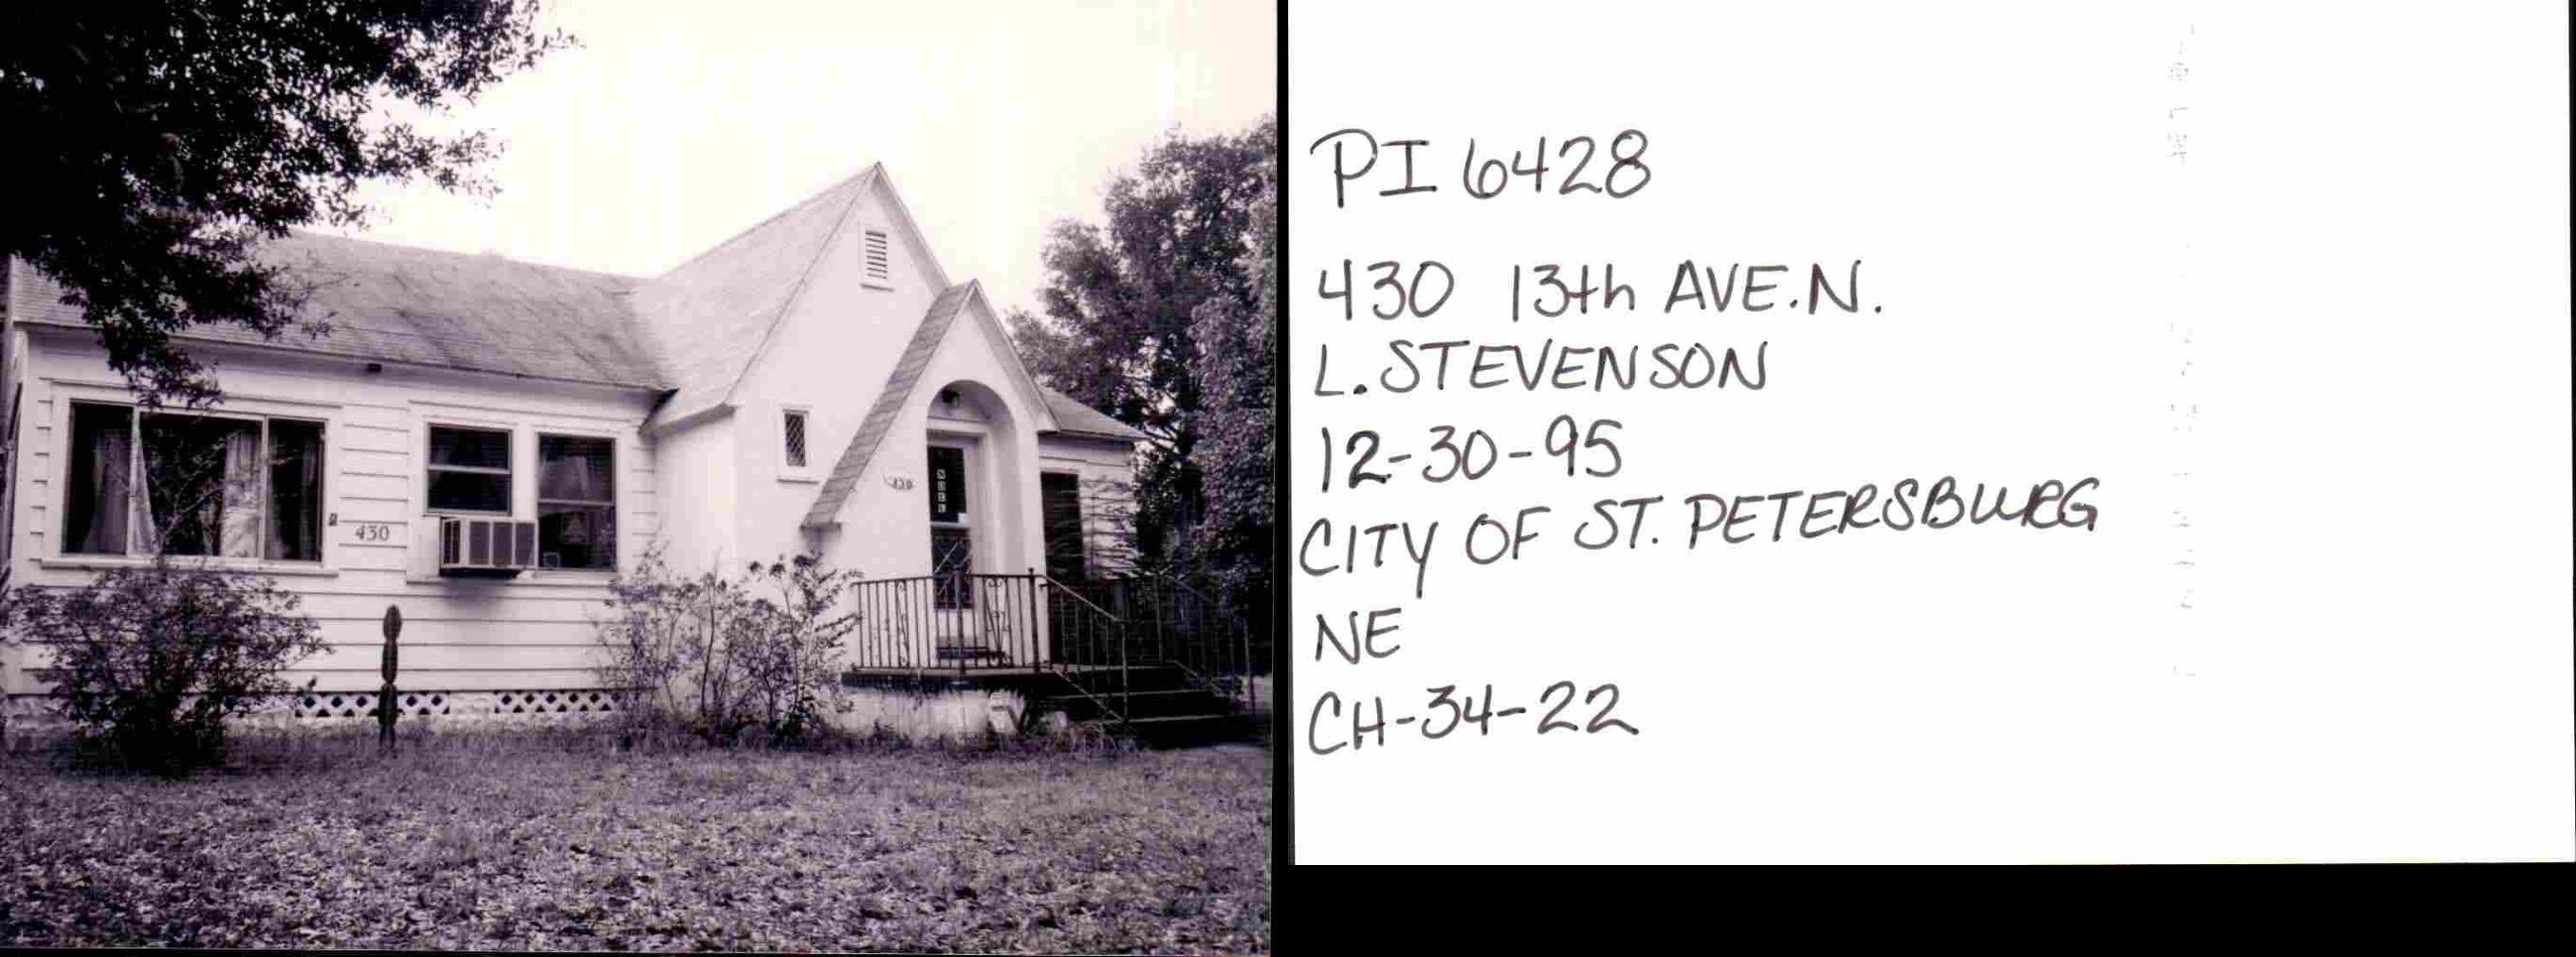 430
430
PI 6428
430 13th AVE.N.
L. STEVENSON
12-30-95
CITY OF ST. PETERSBURG
NE
CH-34-22